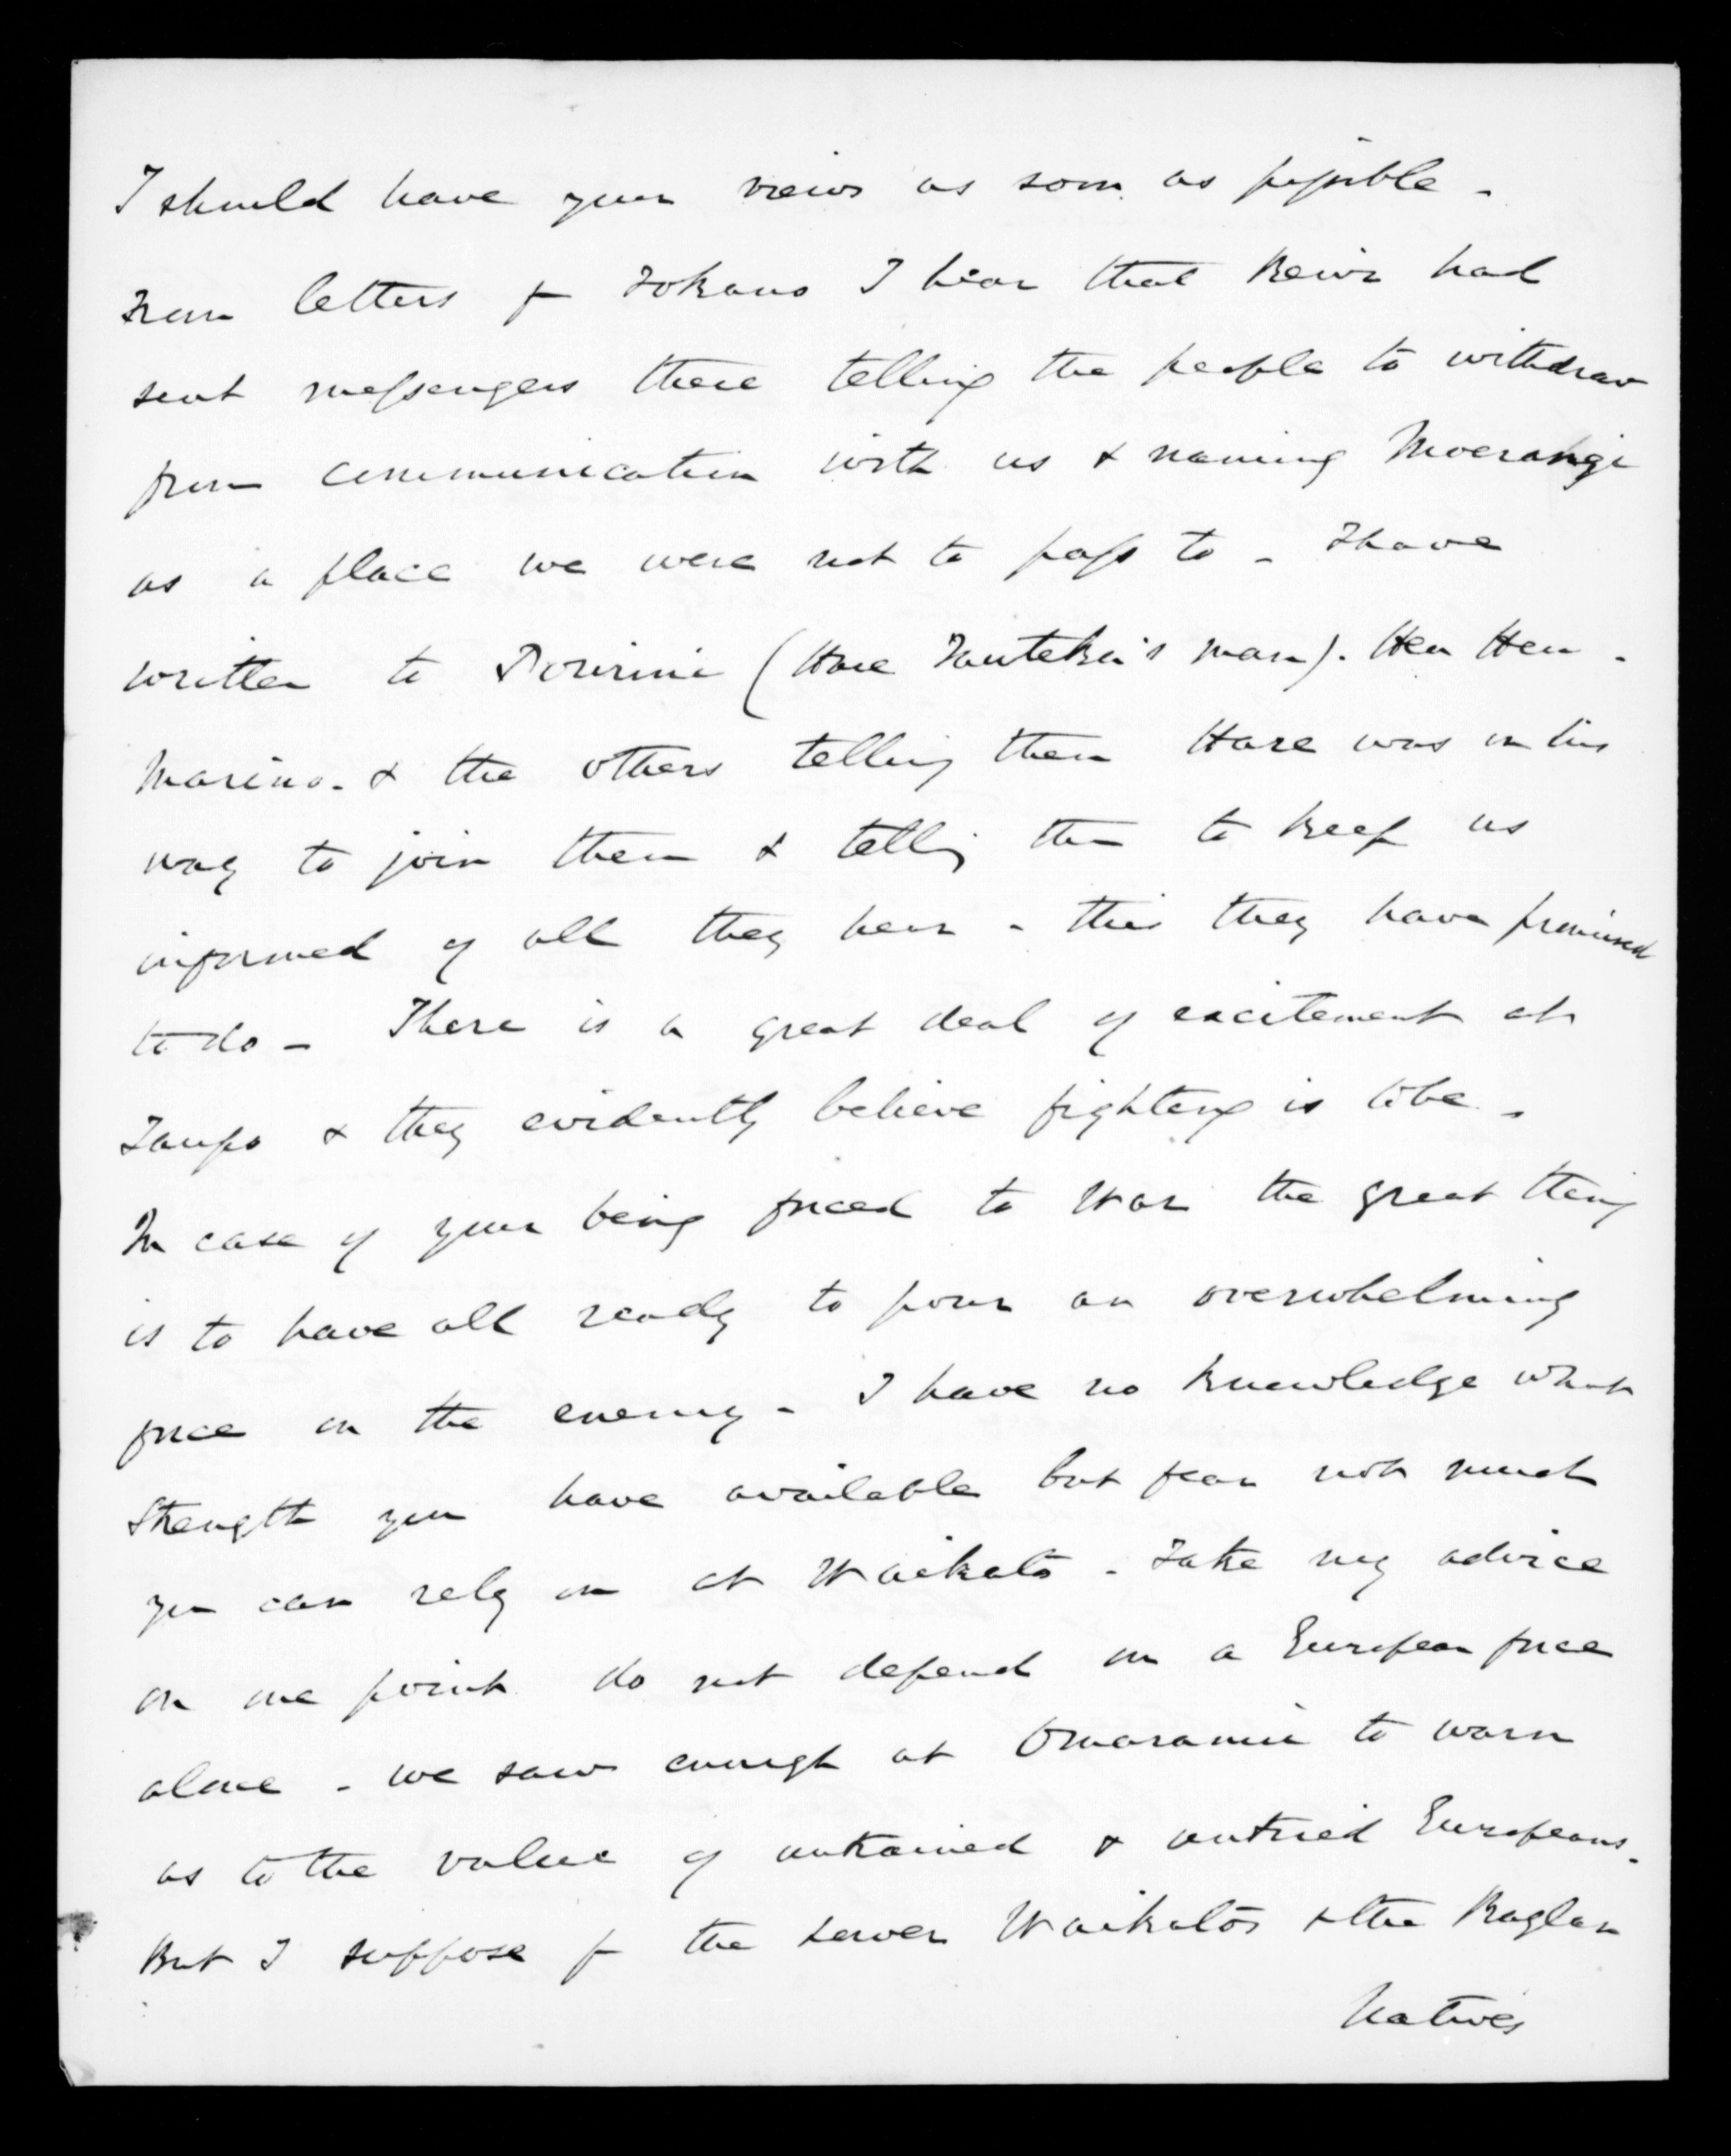 I should have your views as soon as possible -
From letters fm Tokano I hear that Rewi had
sent messengers there telling the people to withdraw
from communication with us & naming Moerangi
as a place we were not to pass to - I have
written to Poririni (Hare Tauteka's man). Heu Heu -
Marino - & the others telling them Hare was on his
way to join them & telling them to keep us
informed of all they hear - this they have promised
to do - There is a great deal of excitement at
Taupo & they evidently believe fighting is to be -
In case of your being forced to War the great thing
is to have all ready to pour an overwhelming
force on the enemy - I have no knowledge what
strength you have available but fear not much
you can rely on at Waikato - Take my advice
on one point do not depend on a European force
alone - we saw enough at Omaranui to warn
as to the value of untrained & untried Europeans -
But I suppose fm the Lower Waikatos & the Raglan
Natives